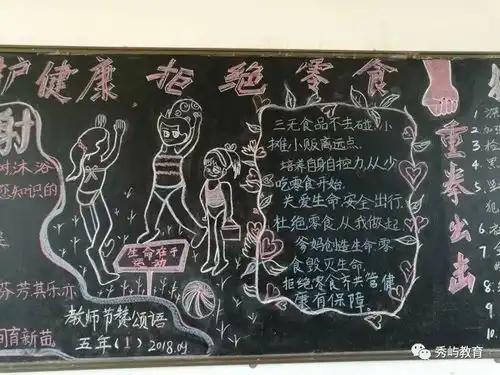 护健康 拒绝零食
射
沐浴
您知识的
芬芳其乐亦
育新苗
生命在于
运动
教师节赞颂语
五年(1) 2018.09
三无食品不去碰,小
摊小贩离远点.
培养自身自控力,从少
吃零食开始.
关爱生命,安全出行.
杜绝零食,从我做起.
爸妈创造生命,零
食毁灭生命.
拒绝零食齐共管健
康有保障
重拳出击
1 深
2 加
3 检
秀屿教育